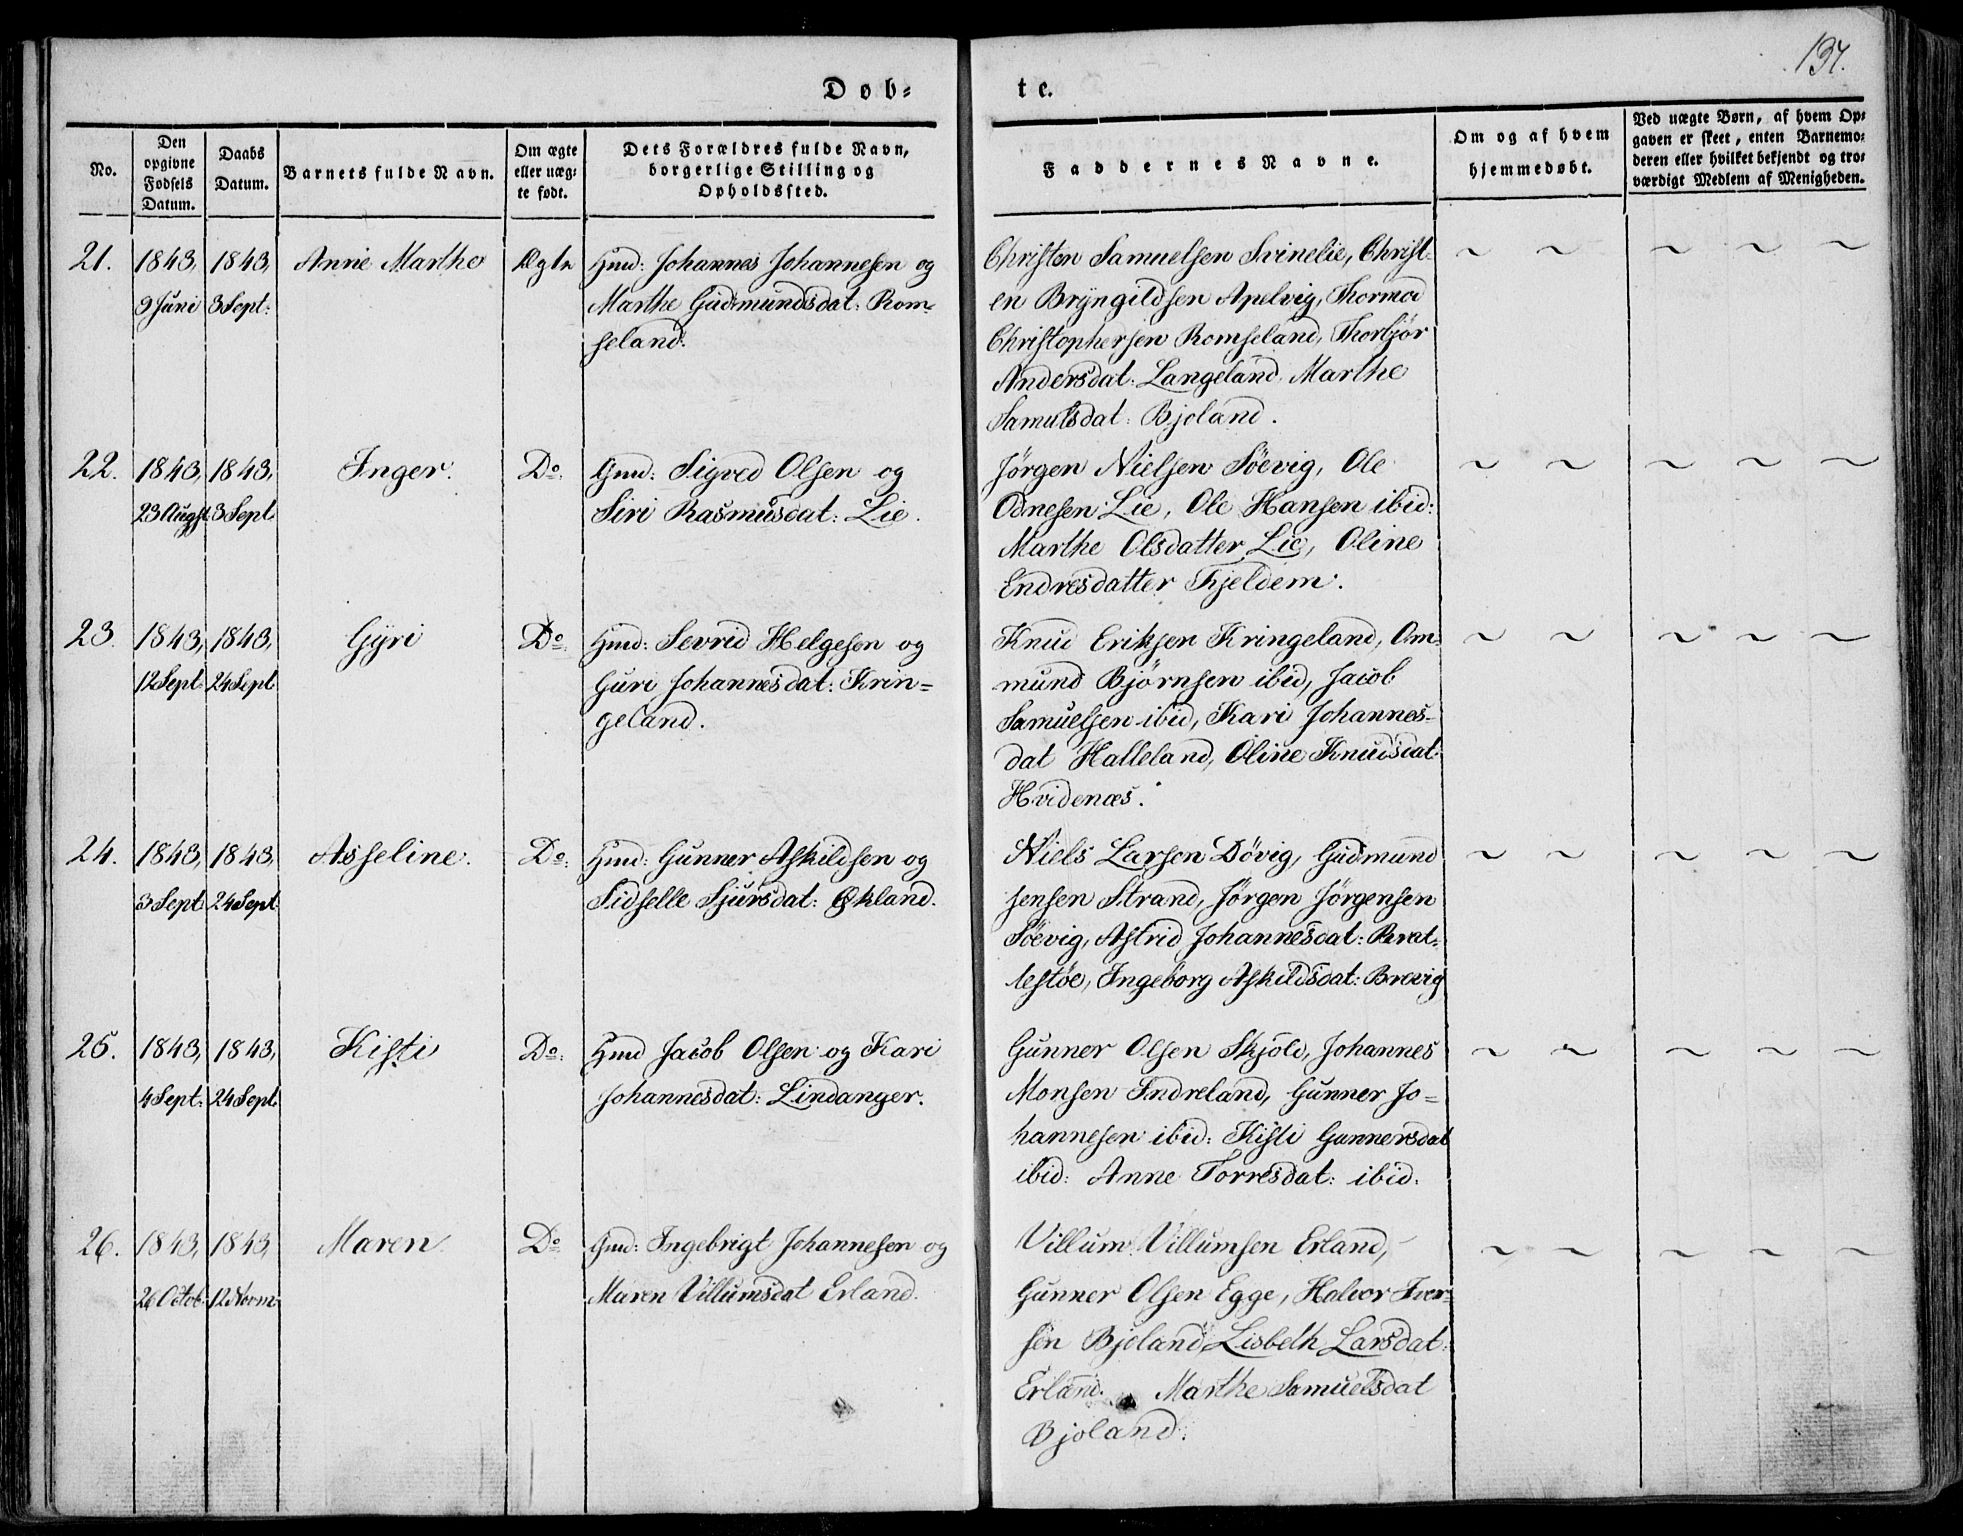 137.
Døb-
te.
No.
Den
opgivne
Fødsels
Datum.
Daabs
Datum.
Barnets fulde Navn.
Om ægte
eller uæg-
te født.
Dets Forældres fulde Navn,
borgerlige Stilling og
Opholdssted.
Faddernes Navne.
Om og af hvem
hjemmedøbt.
Ved uægte Børn, af hvem Op-
gaven er skeet, enten Barnemo-
deren eller hvilket bekjendt og tro-
værdigt Medlem af Menigheden.
21.
1843,
9 Juni
1843,
3 Sept:
Anne Marthe
Ægte
Gmd: Johannes Johannesen og
Marthe Gudmundsdat: Rom-
seland.
Christen Samuelsen Svinelie, Christ-
en Bryngildsen Apelvig, Thormod
Christophersen Romseland, Thorbjør
Andersdat: Langeland, Marthe
Samulsdat: Bjoland.
22.
1843,
23 Augst.
1843,
3 Sept.
Inger.
Do
Gmd: Sigved Olsen og
Siri Rasmusdat: Lie.
Jørgen Nielsen Søevig, Ole
Odnesen Lie, Ole Hansen ibid:
Marthe Olsdatter Lie, Oline
Endresdatter Fjeldem.
23.
1843,
12 Sept.
1843,
24 Sept
Gyri
Do
Gmd: Sevrid Helgesen og
Guri Johannesdat: Krin-
geland.
Knud Eriksen Kringeland, Om-
mund Bjørnsen ibid, Jacob
Samuelsen ibid, Kari Johannes-
dat Halleland, Oline Knudsdat:
Hvidenæs.
24.
1843,
3 Sept
1843,
24 Sept
Asseline.
Do:
Gmd: Gunner Askildsen og
Sidselle Sjursdat: Økland.
Niels Larsen Døvig, Gudmund
Jensen Strand, Jørgen Jørgensen
Søevig, Astrid Johannesdat: Brat-
lestøe, Ingeborg Askildsdat: Brevig
25.
1843,
4 Sept:
1843,
24 Sept.
Kisti
Do:
Gmd Jacob Olsen og Kari
Johannesdat: Lindanger.
Gunner Olsen Skjold, Johannes
Monsen Indreland, Gunner Jo-
hannesen ibid: Kisti Gunnersdat
ibid: Anne Torresdat: ibid.
26.
1843,
26 Octob:
1843,
12 Novm:
Maren
Do
Gmd: Ingebrigt Johannesen og
Maren Villumsdat Erland.
Villum Villumsen Erland,
Gunner Olsen Egge, Halvor Iver-
sen Bjoland, Lisbeth Larsdat:
Erland. Marthe Samuelsdat
Bjoland.